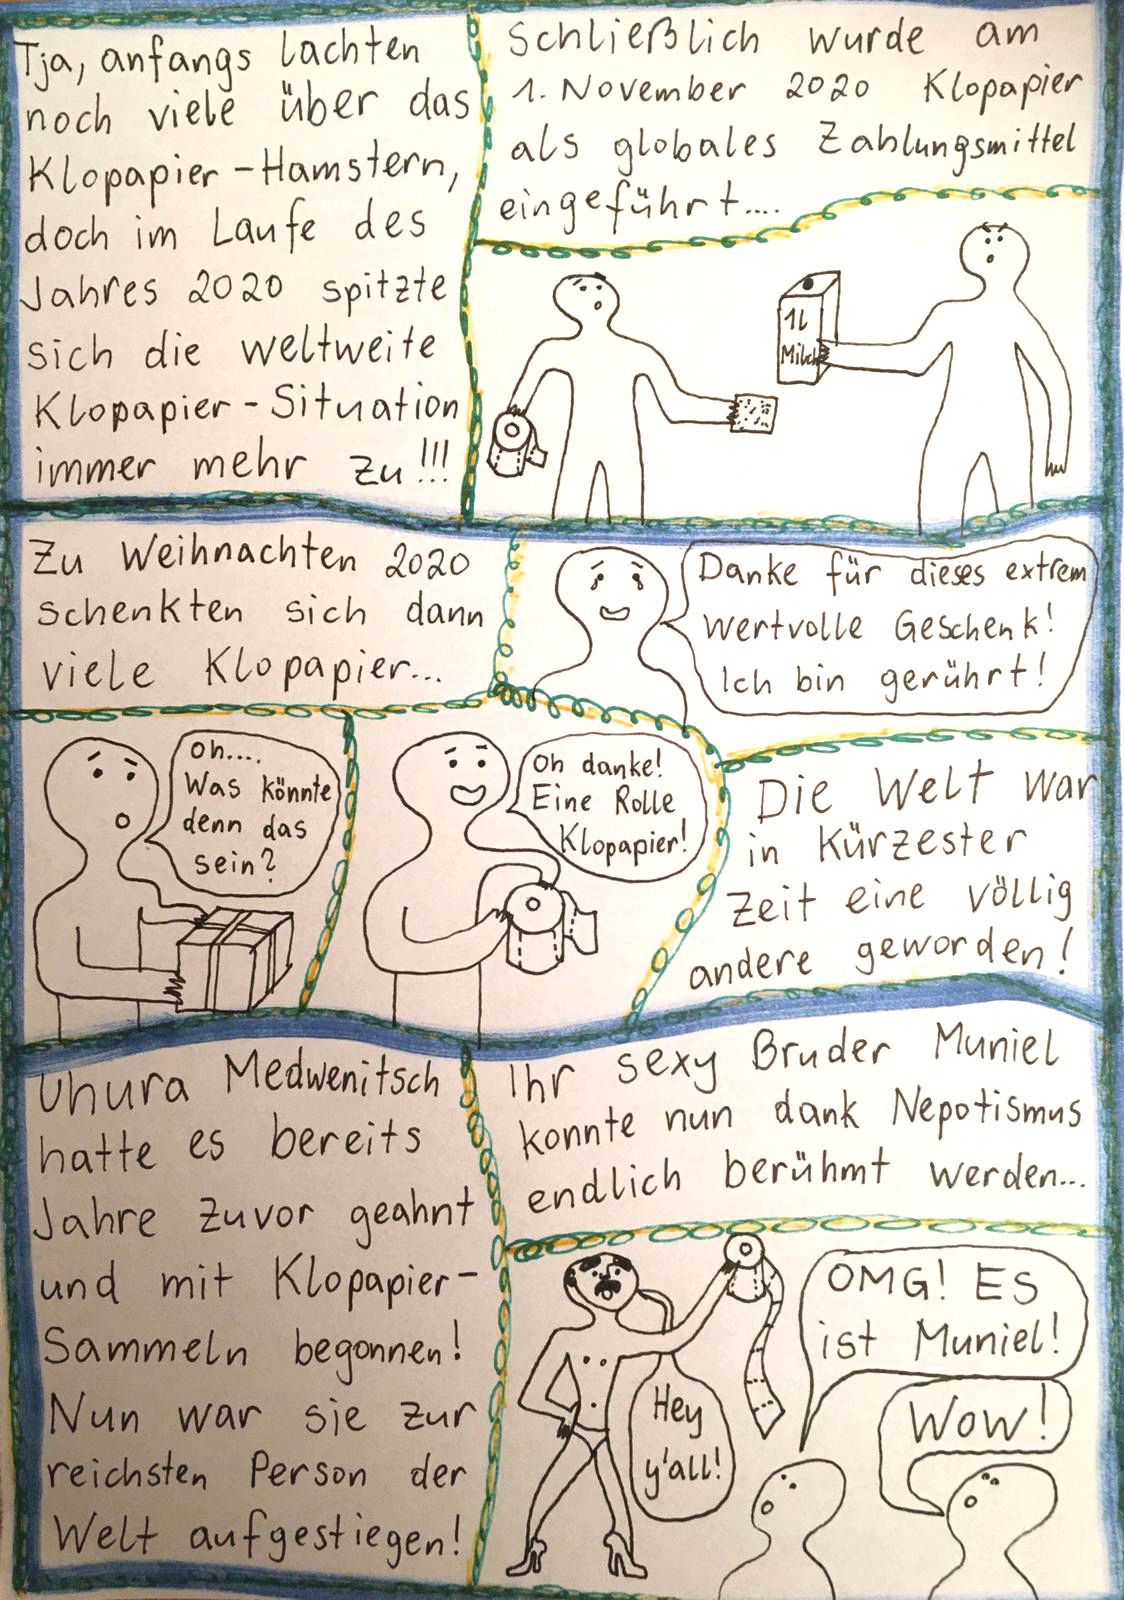 Tja, anfangs lachten
noch viele über das
Klopapier-Hamstern,
doch im Laufe des
Jahres 2020 spitzte
sich die weltweite
Klopapier-Situation
immer mehr zu!!!
Schließlich wurde am
1. November 2020 Klopapier
als globales Zahlungsmittel
eingeführt....
1l
Milch
Zu Weihnachten 2020
schenkten sich dann
viele Klopapier...
Danke für dieses extrem
wertvolle Geschenk!
Ich bin gerührt!
Oh....
Was könnte
denn das
sein?
Oh danke!
Eine Rolle
Klopapier!
Die Welt war
in kürzester
Zeit eine völlig
andere geworden!
Uhura Medwenitsch
hatte es bereits
Jahre zuvor geahnt
und mit Klopapier-
Sammeln begonnen!
Nun war sie zur
reichsten Person der
Welt aufgestiegen!
Ihr sexy Bruder Muniel
konnte nun dank Nepotismus
endlich berühmt werden...
Hey
y'all!
OMG! Es
ist Muniel!
Wow!